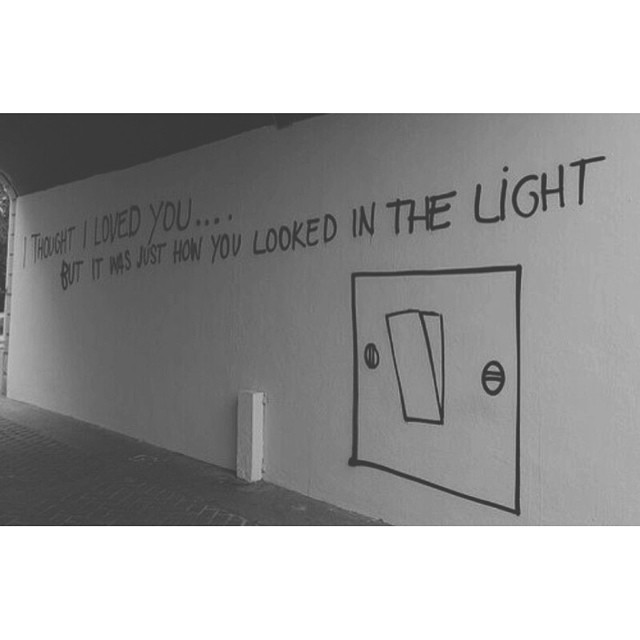 I THOUGHT I LOVED YOU....
BUT IT WAS JUST HOW YOU LOOKED IN THE LIGHT